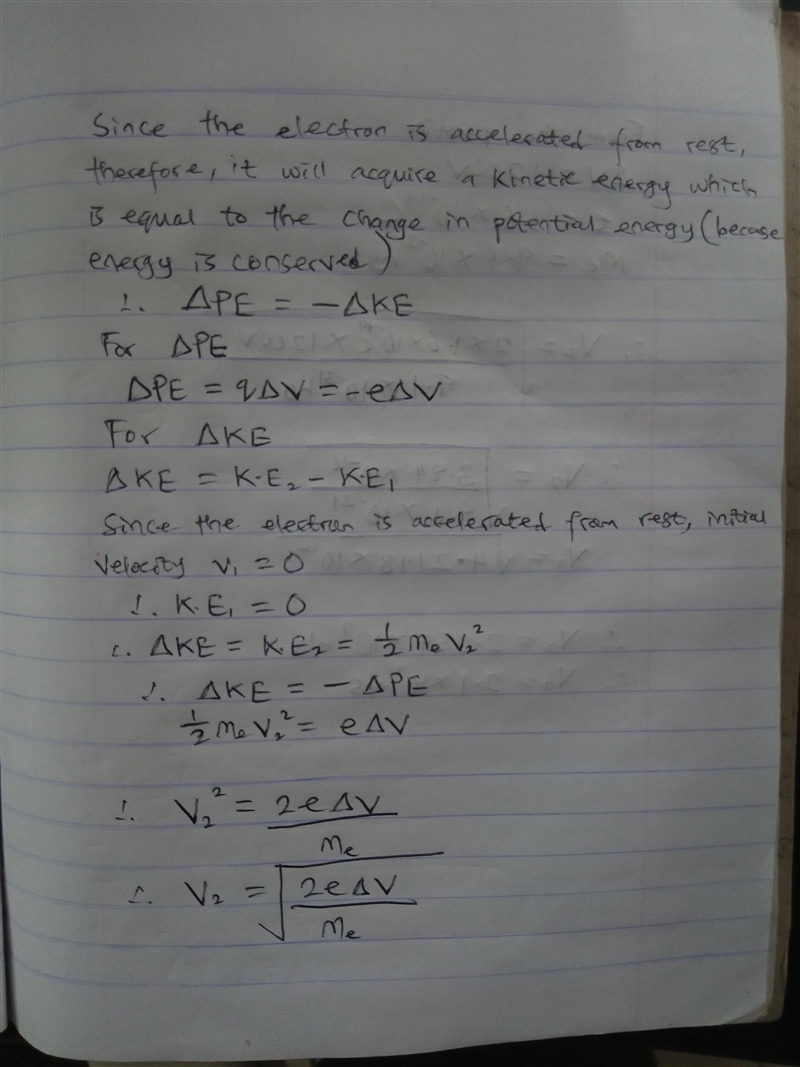 Since the electron is accelerated from rest,
therefore, it will acquire a kinetic energy which
is equal to the change in potential energy (becase
energy is conserved)
∴ ΔPE = -ΔKE
For ΔPE
ΔPE = qΔV = -eΔV
For ΔKE
ΔKE = K.E₂ - K.E₁
Since the electron is accelerated from rest, initial
velocity v₁ = 0
∴ K.E₁ = 0
∴ ΔKE = K.E₂ = ½ mₑV₂²
∴ ΔKE = - ΔPE
½ mₑV₂² = eΔV
∴ V₂² = 2eΔV/mₑ
∴ V₂ = √(2eΔV/mₑ)